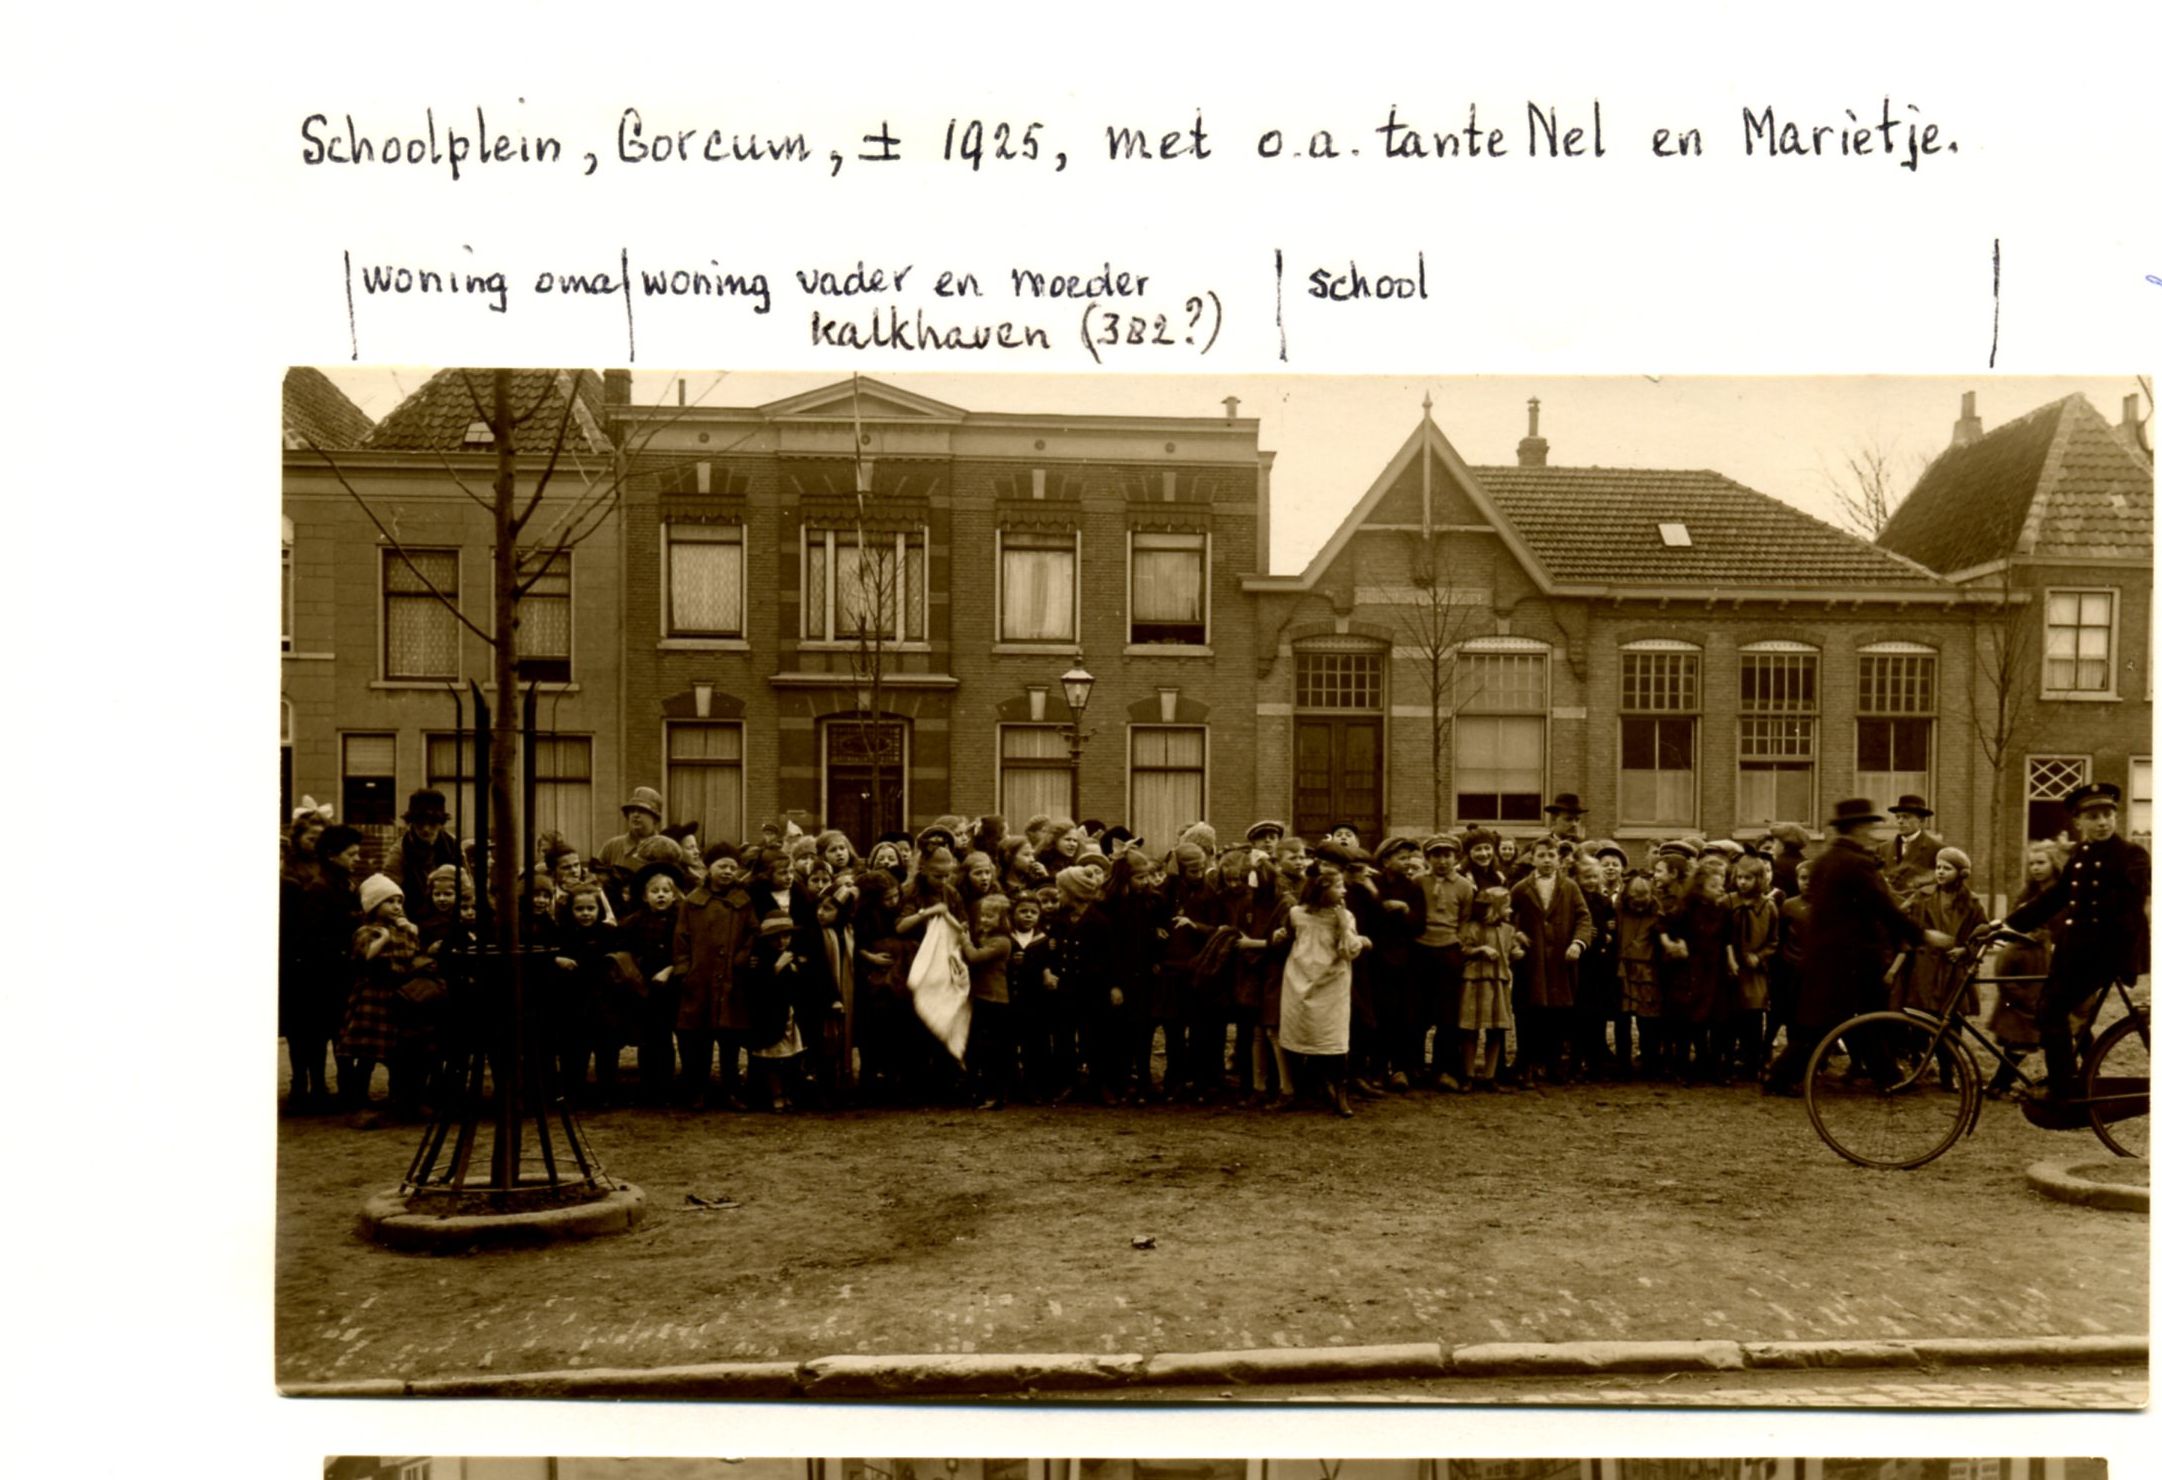 Schoolplein, Gorcum, ± 1925, met o.a. tante Nel en Marietje.
|woning oma|woning vader en moeder | school |
Kalkhaven (382?)